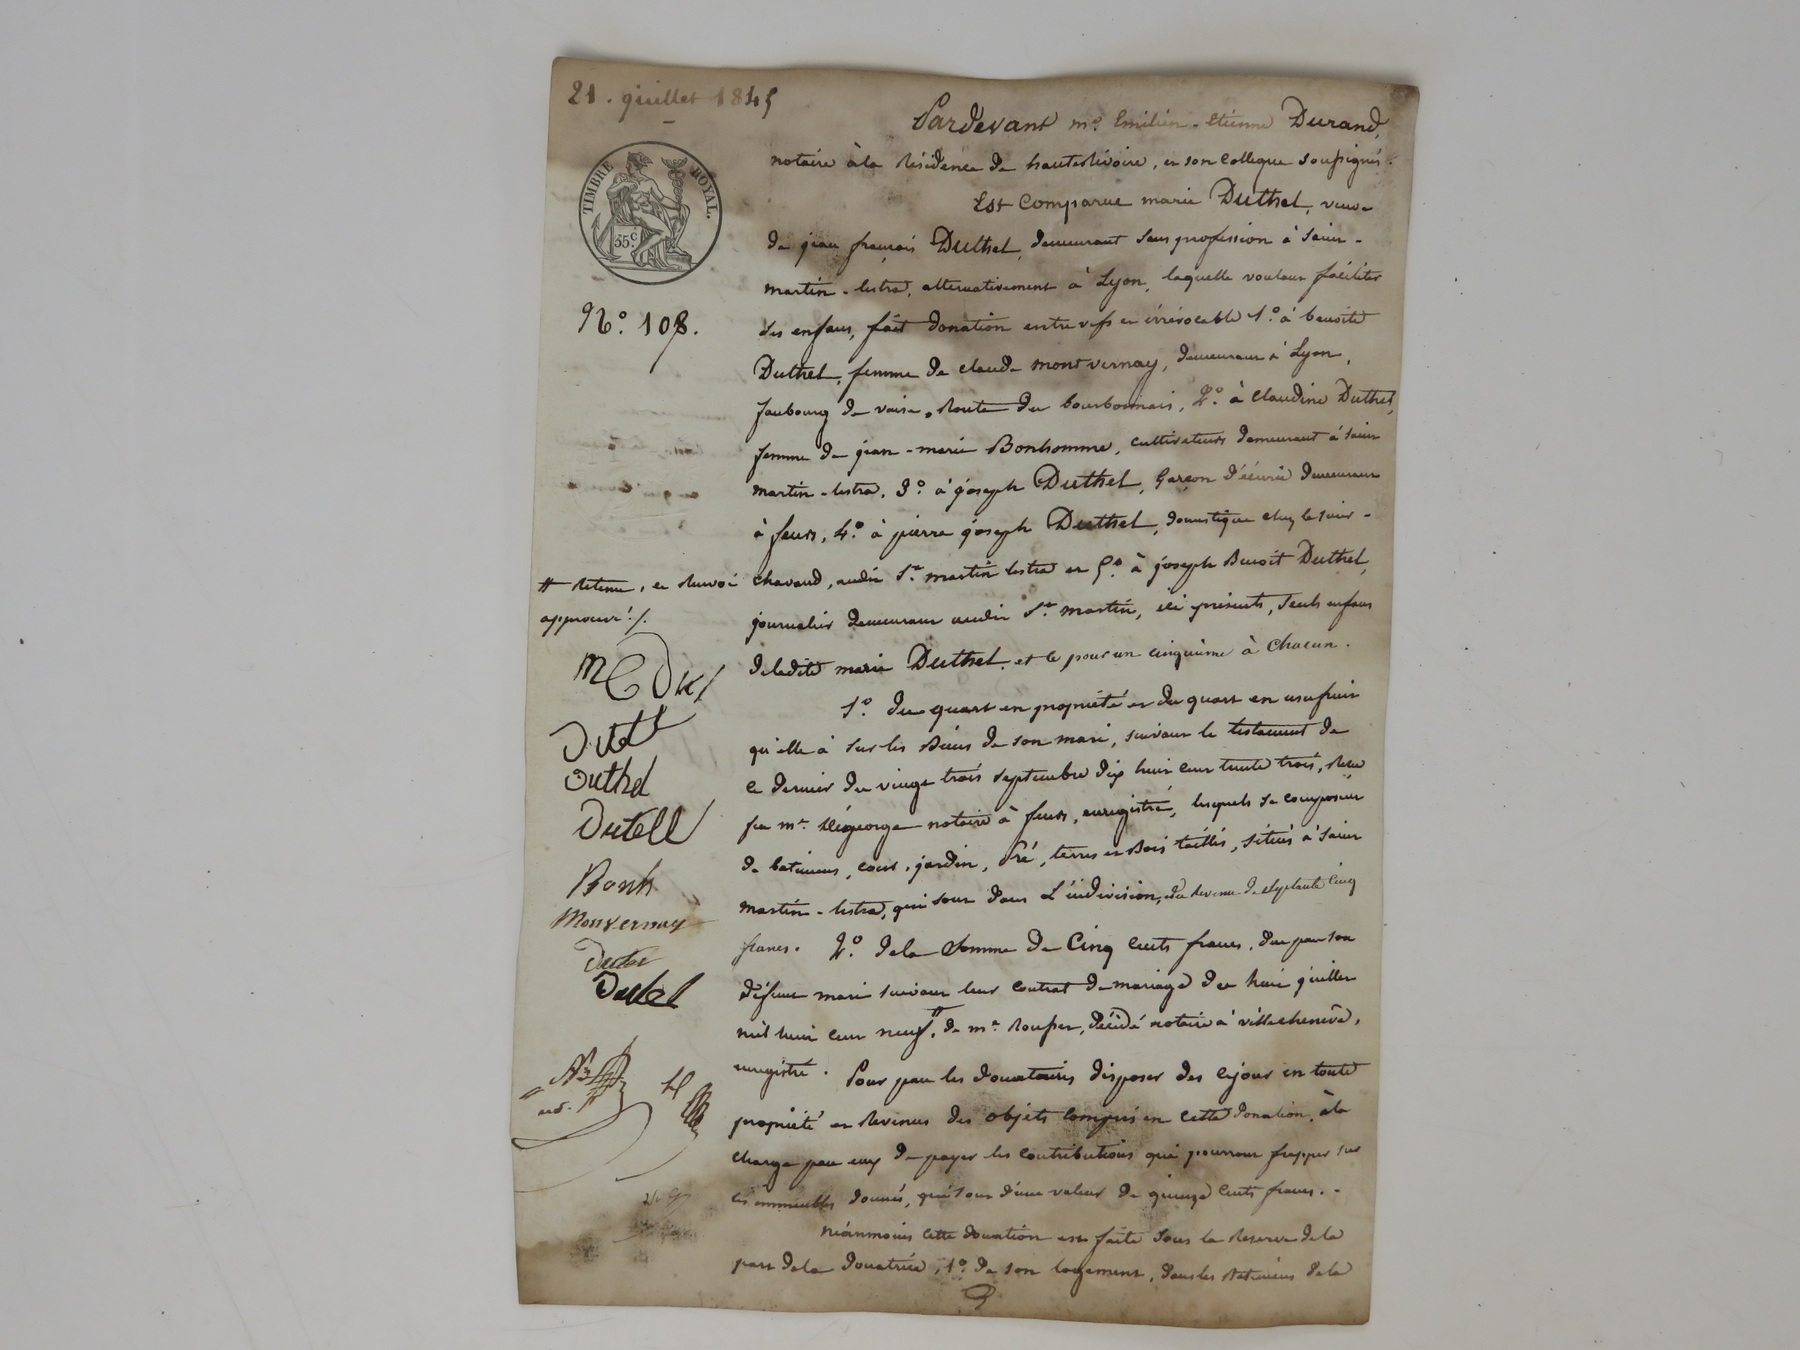 21. juillet 1845
Pardevant me. Emilien-Etienne Durand,
TIMBRE ROYAL.
35c.
notaire à la résidence de hauterivoire, et son collegue soussignés.
Est Comparue marie Duthel, veuve
de jean françois Duthel, demeurant sans profession à saint-
martin-lestra, alternativement à Lyon, laquelle voulant faciliter
No. 108.
ses enfans, fait donation entre vifs et irrévocable 1o. à benoite
Duthel, femme de claude montvernay, demeurant à Lyon,
faubourg de vaise, Route du bourbonnais, 2o. à Claudine Duthel,
femme de jean-marie Bonhomme, cultivateurs demeurant à saint
martin-lestra, 3o. à joseph Duthel, Garçon d'écurie demeurant
à feurs, 4o. à pierre joseph Duthel, domestique chez le sieur-
# Retenu, et Renvoi
chavand, audit St. martin lestra et 5o. à joseph Benoit Duthel,
approuvé ./.
journalier demeurant audit St. martin, ici présents, seuls enfans
de ladite marie Duthel, et ce pour un cinquième à chacun.
1o. du quart en propriété et du quart en usufruit
qu'elle à sur les Biens de son mari, suivant le testament de
Duthel
ce dernier du vingt trois septembre dix huit cent trente trois, Reçu
Dutell
par me. négeorge notaire à feurs, enregistré, lesquels se composent
de batimens, cour, jardin, Pré, terres et Bois taillis, situés à saint
Bonh
martin-lestra, qui sont dans l'indivision, du revenu de septante cinq
Monvernay
francs. 2o. de la somme de Cinq cents francs, due par son
Dutel
défunt mari suivant leur contrat de mariage du huit juillet
mil huit cent neuf,# de me. , décédé notaire à villechenève,
enregistré.
Pour par les donataires disposer dès ce jour en toute
propriété et Revenus des objets compris en cette donation, à la
charge par eux de payer les contributions qui pourront frapper sur
ces immeubles donnés, qui sont d'une valeur de quinze cents francs.-
néanmoins cette donation est faite sous la Reserve de la
part de la donatrice, 1o. de son logement, dans les Batimens de la